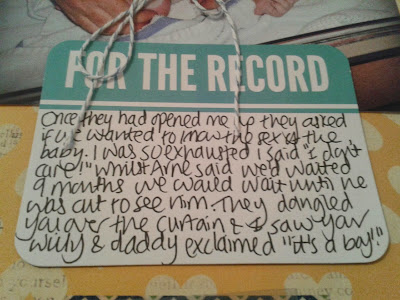 FOR THE RECORD
Once they had opened me up they asked
if we wanted to know the sex of the
baby. I was so exhausted I said "I don't
care!" Whilst Arne said we'd waited
9 months we would wait until he
was out to see him. They dangled
you over the curtain & I saw your
willy & daddy exclaimed "it's a boy!"